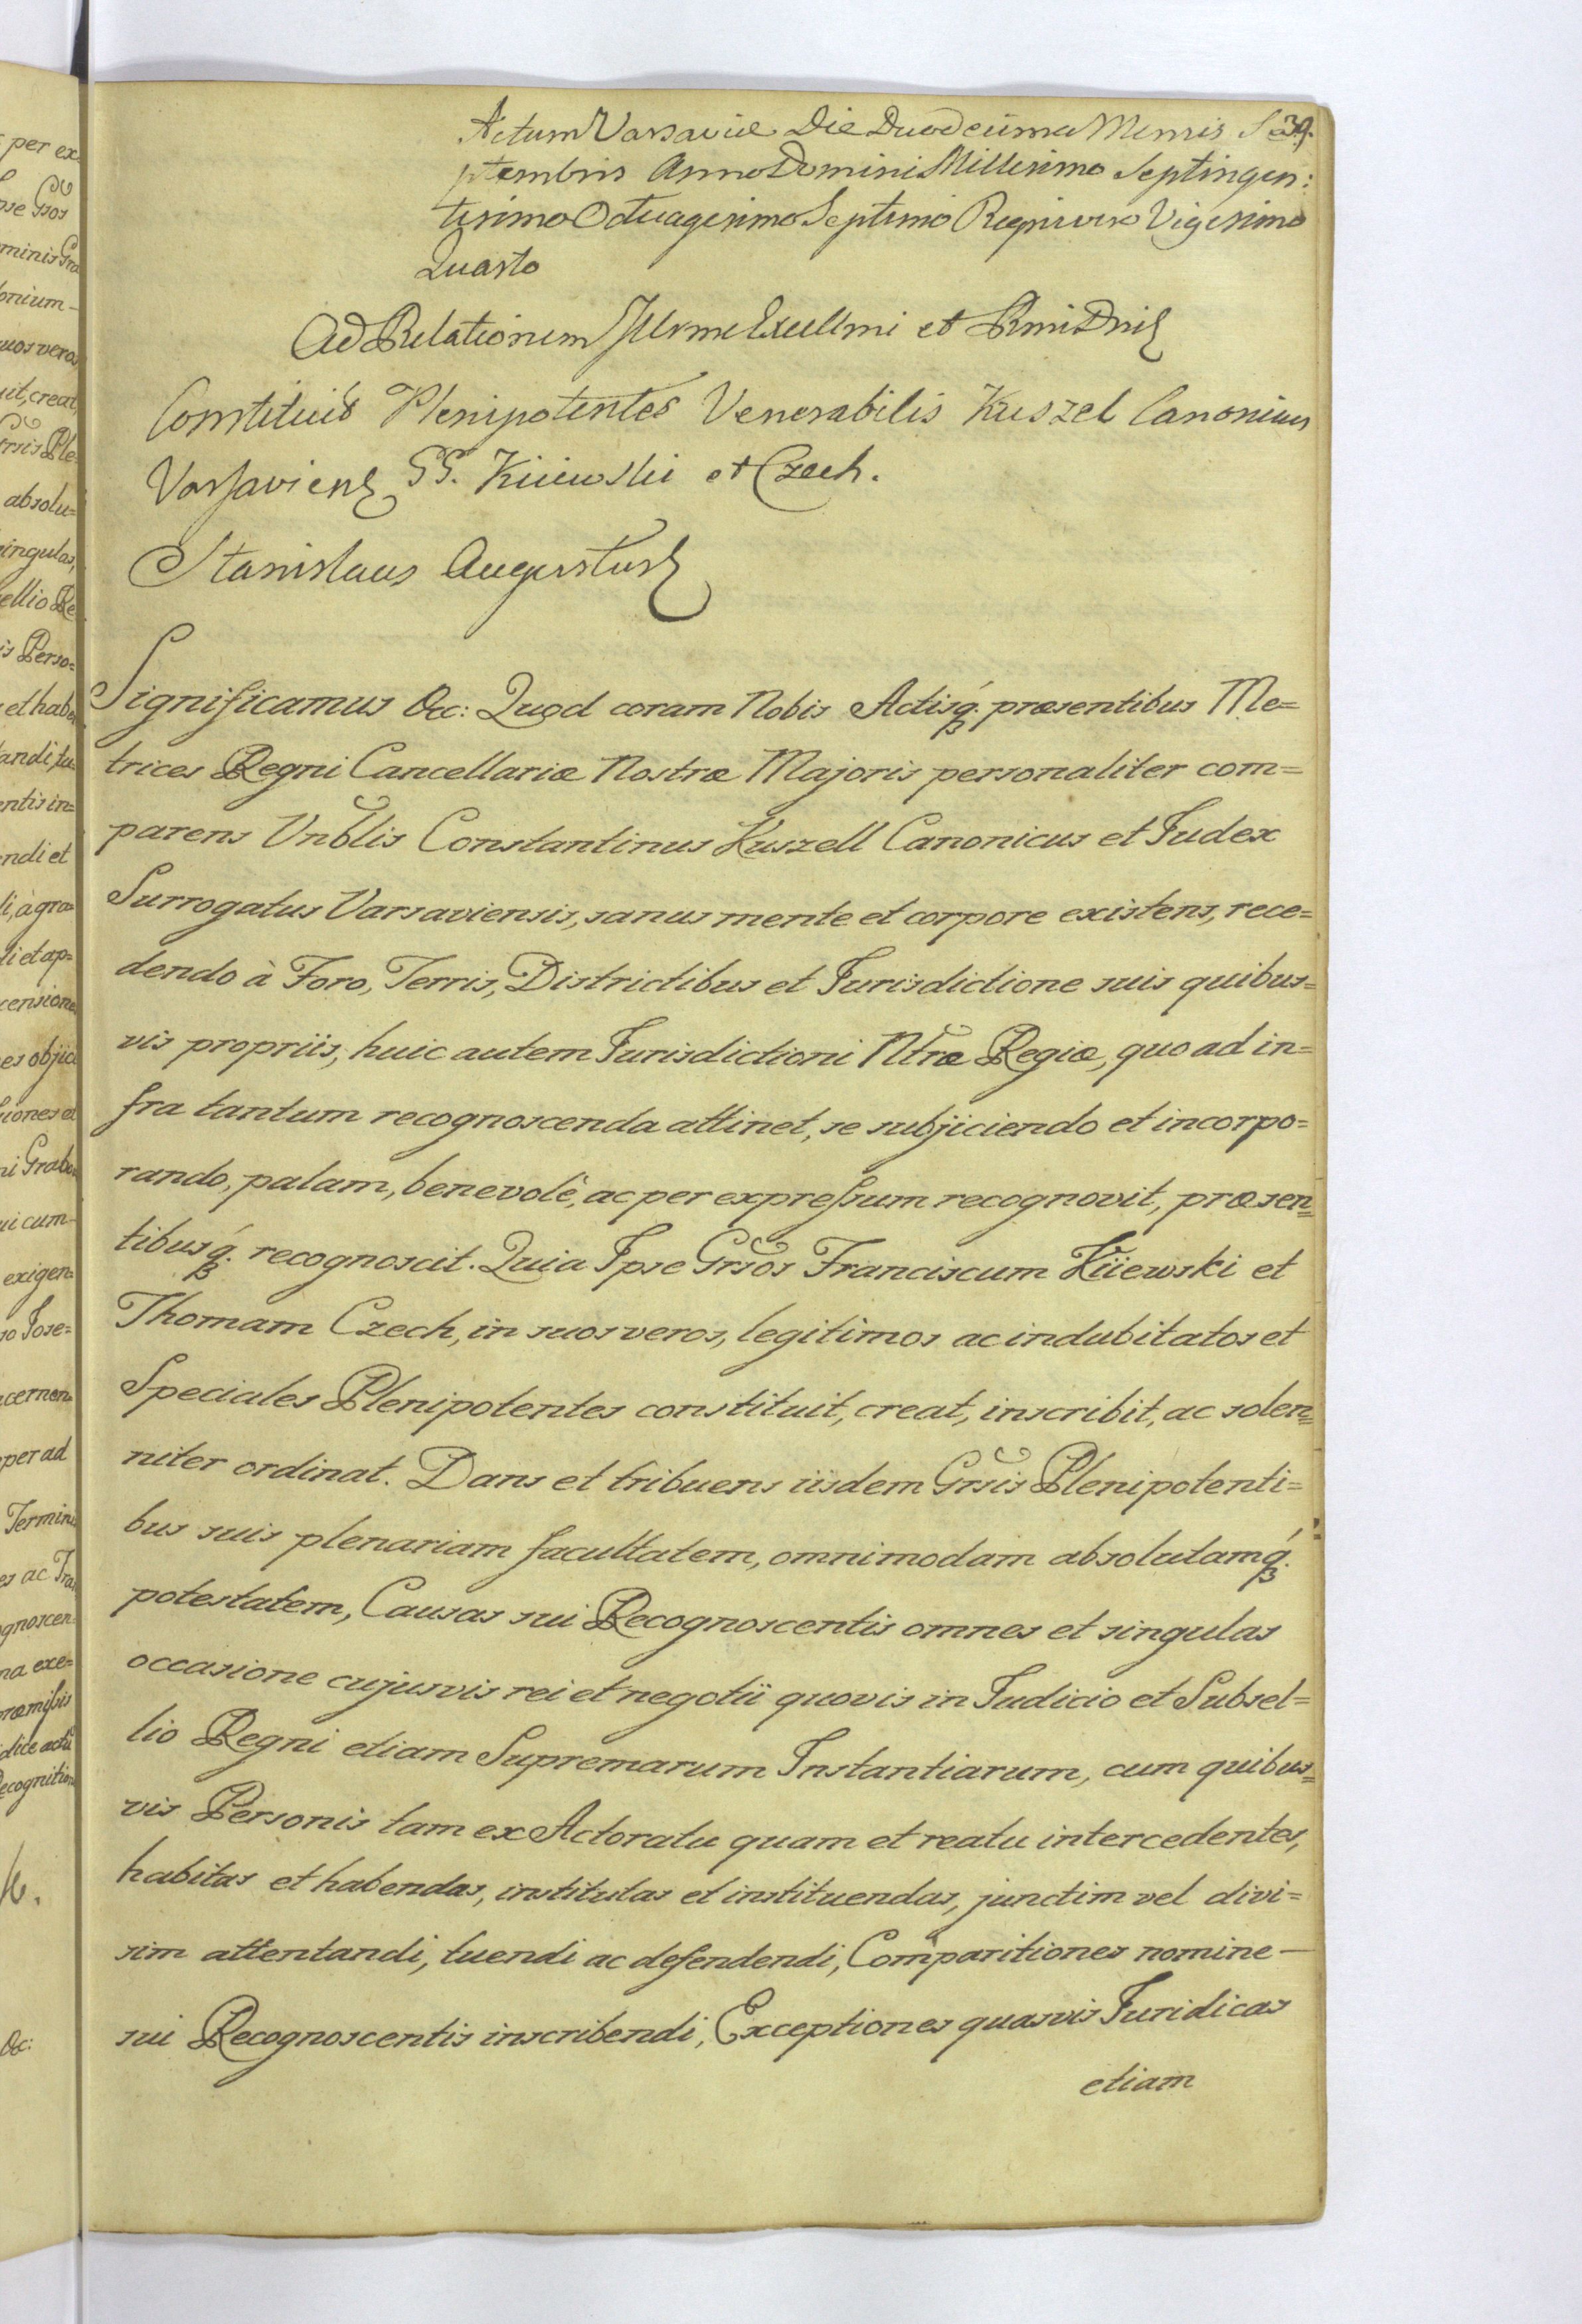 39.
Actum Varsaviæ Die Duodecima Mensis Se
ptembris Anno Domini Millesimo Septingen:
tesimo Octuagesimo Septimo Regni vero Vigesimo
Quarto
Ad Relationem Illrme Excellmi et Rmi Dni
Constituit Plenipotentes Venerabilis Kuszel Canonicus
Varsaviens GG. Kiiewski et Czech.
Stanislaus Augustus
Significamus &c: Quod coram Nobis Actisq́. præsentibus Me=
trices Regni Cancellariæ Nostræ Majoris personaliter com=
parens Vnblis Constantinus Kuszell Canonicus et Judex
Surrogatus Varsaviensis, sanus mente et corpore existens, rece=
dendo à Foro, Terris, Districtibus et Jurisdictione suis quibus=
vis propriis, huic autem Jurisdictioni Ntræ Regiæ, quo ad in=
fra tantum recognoscenda attinet, se subjiciendo et incorpo=
rando, palam, benevolè, ac per expressum recognovit, præsen=
tibusq́. recognoscit. Quia Ipse Grsos Franciscum Kiiewski et
Thomam Czech, in suos veros, legitimos ac indubitatos et
Speciales Plenipotentes constituit, creat, inscribit, ac solen=
niter ordinat. Dans et tribuens iisdem Grsis Plenipotenti=
bus suis plenariam facultatem, omnimodam absolutamq́.
potestatem, Causas sui Recognoscentis omnes et singulas
occasione cujusvis rei et negotii quovis in Judicio et Subsel=
lio Regni etiam Supremarum Instantiarum, cum quibus=
vis Personis tam ex Actoratu quam et reatu intercedentes,
habitas et habendas, institutas et instituendas, junctim vel divi=
sim attentandi, tuendi ac defendendi, Comparitiones nomine
sui Recognoscentis inscribendi, Exceptiones quasvis Juridicas
etiam